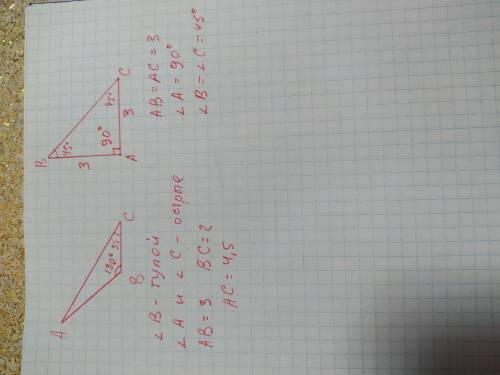 A
B
C
130°
∠B - тупой
∠A и ∠C - острые
AB = 3 BC = 2
AC = 4,5
B
A
C
45°
90°
45°
3
3
AB = AC = 3
∠A = 90°
∠B = ∠C = 45°